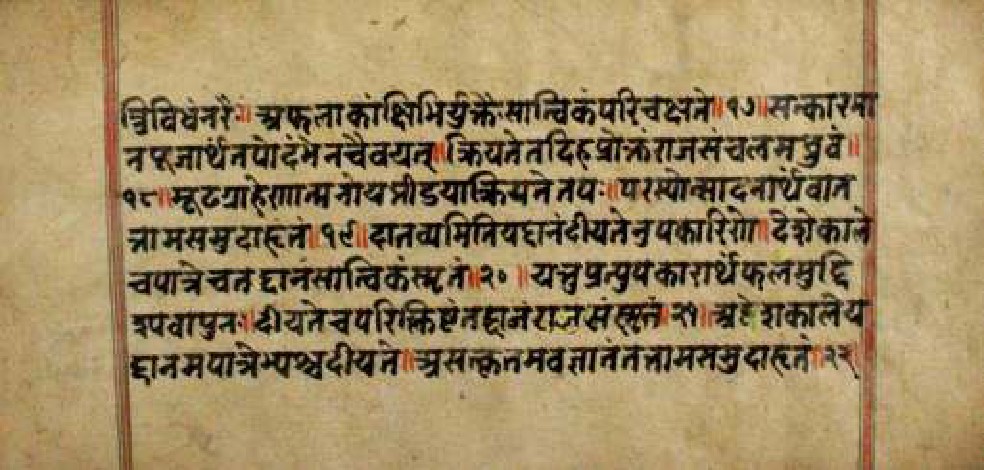 त्रिविधंनरैः॥अफलाकांक्षिभिर्युक्तैःसात्विकंपरिचक्षते॥१७॥सत्कारमा
नपूजार्थंतपोदंभेनचैवयत्॥क्रियतेतदिहप्रोक्तंराजसंचलमध्रुवं॥
१८॥मूढग्राहेणात्मनोयत्पीडयाक्रियतेतपः॥परस्योत्सादनार्थंवात
त्तामसमुदाहृतं॥१९॥दातव्यमितियद्दानंदीयतेनुपकारिणे॥देशेकाले
चपात्रेचतद्दानंसात्विकंस्मृतं॥२०॥यत्तुप्रत्युपकारार्थंफलमुद्दि
श्यवापुनः॥दीयतेचपरिक्लिष्टंतद्दानंराजसंस्मृतं॥२१॥अदेशकालेय
द्दानमपात्रेभ्यश्चदीयते॥असत्कृतमवज्ञातंतत्तामसमुदाहृतं॥२२॥